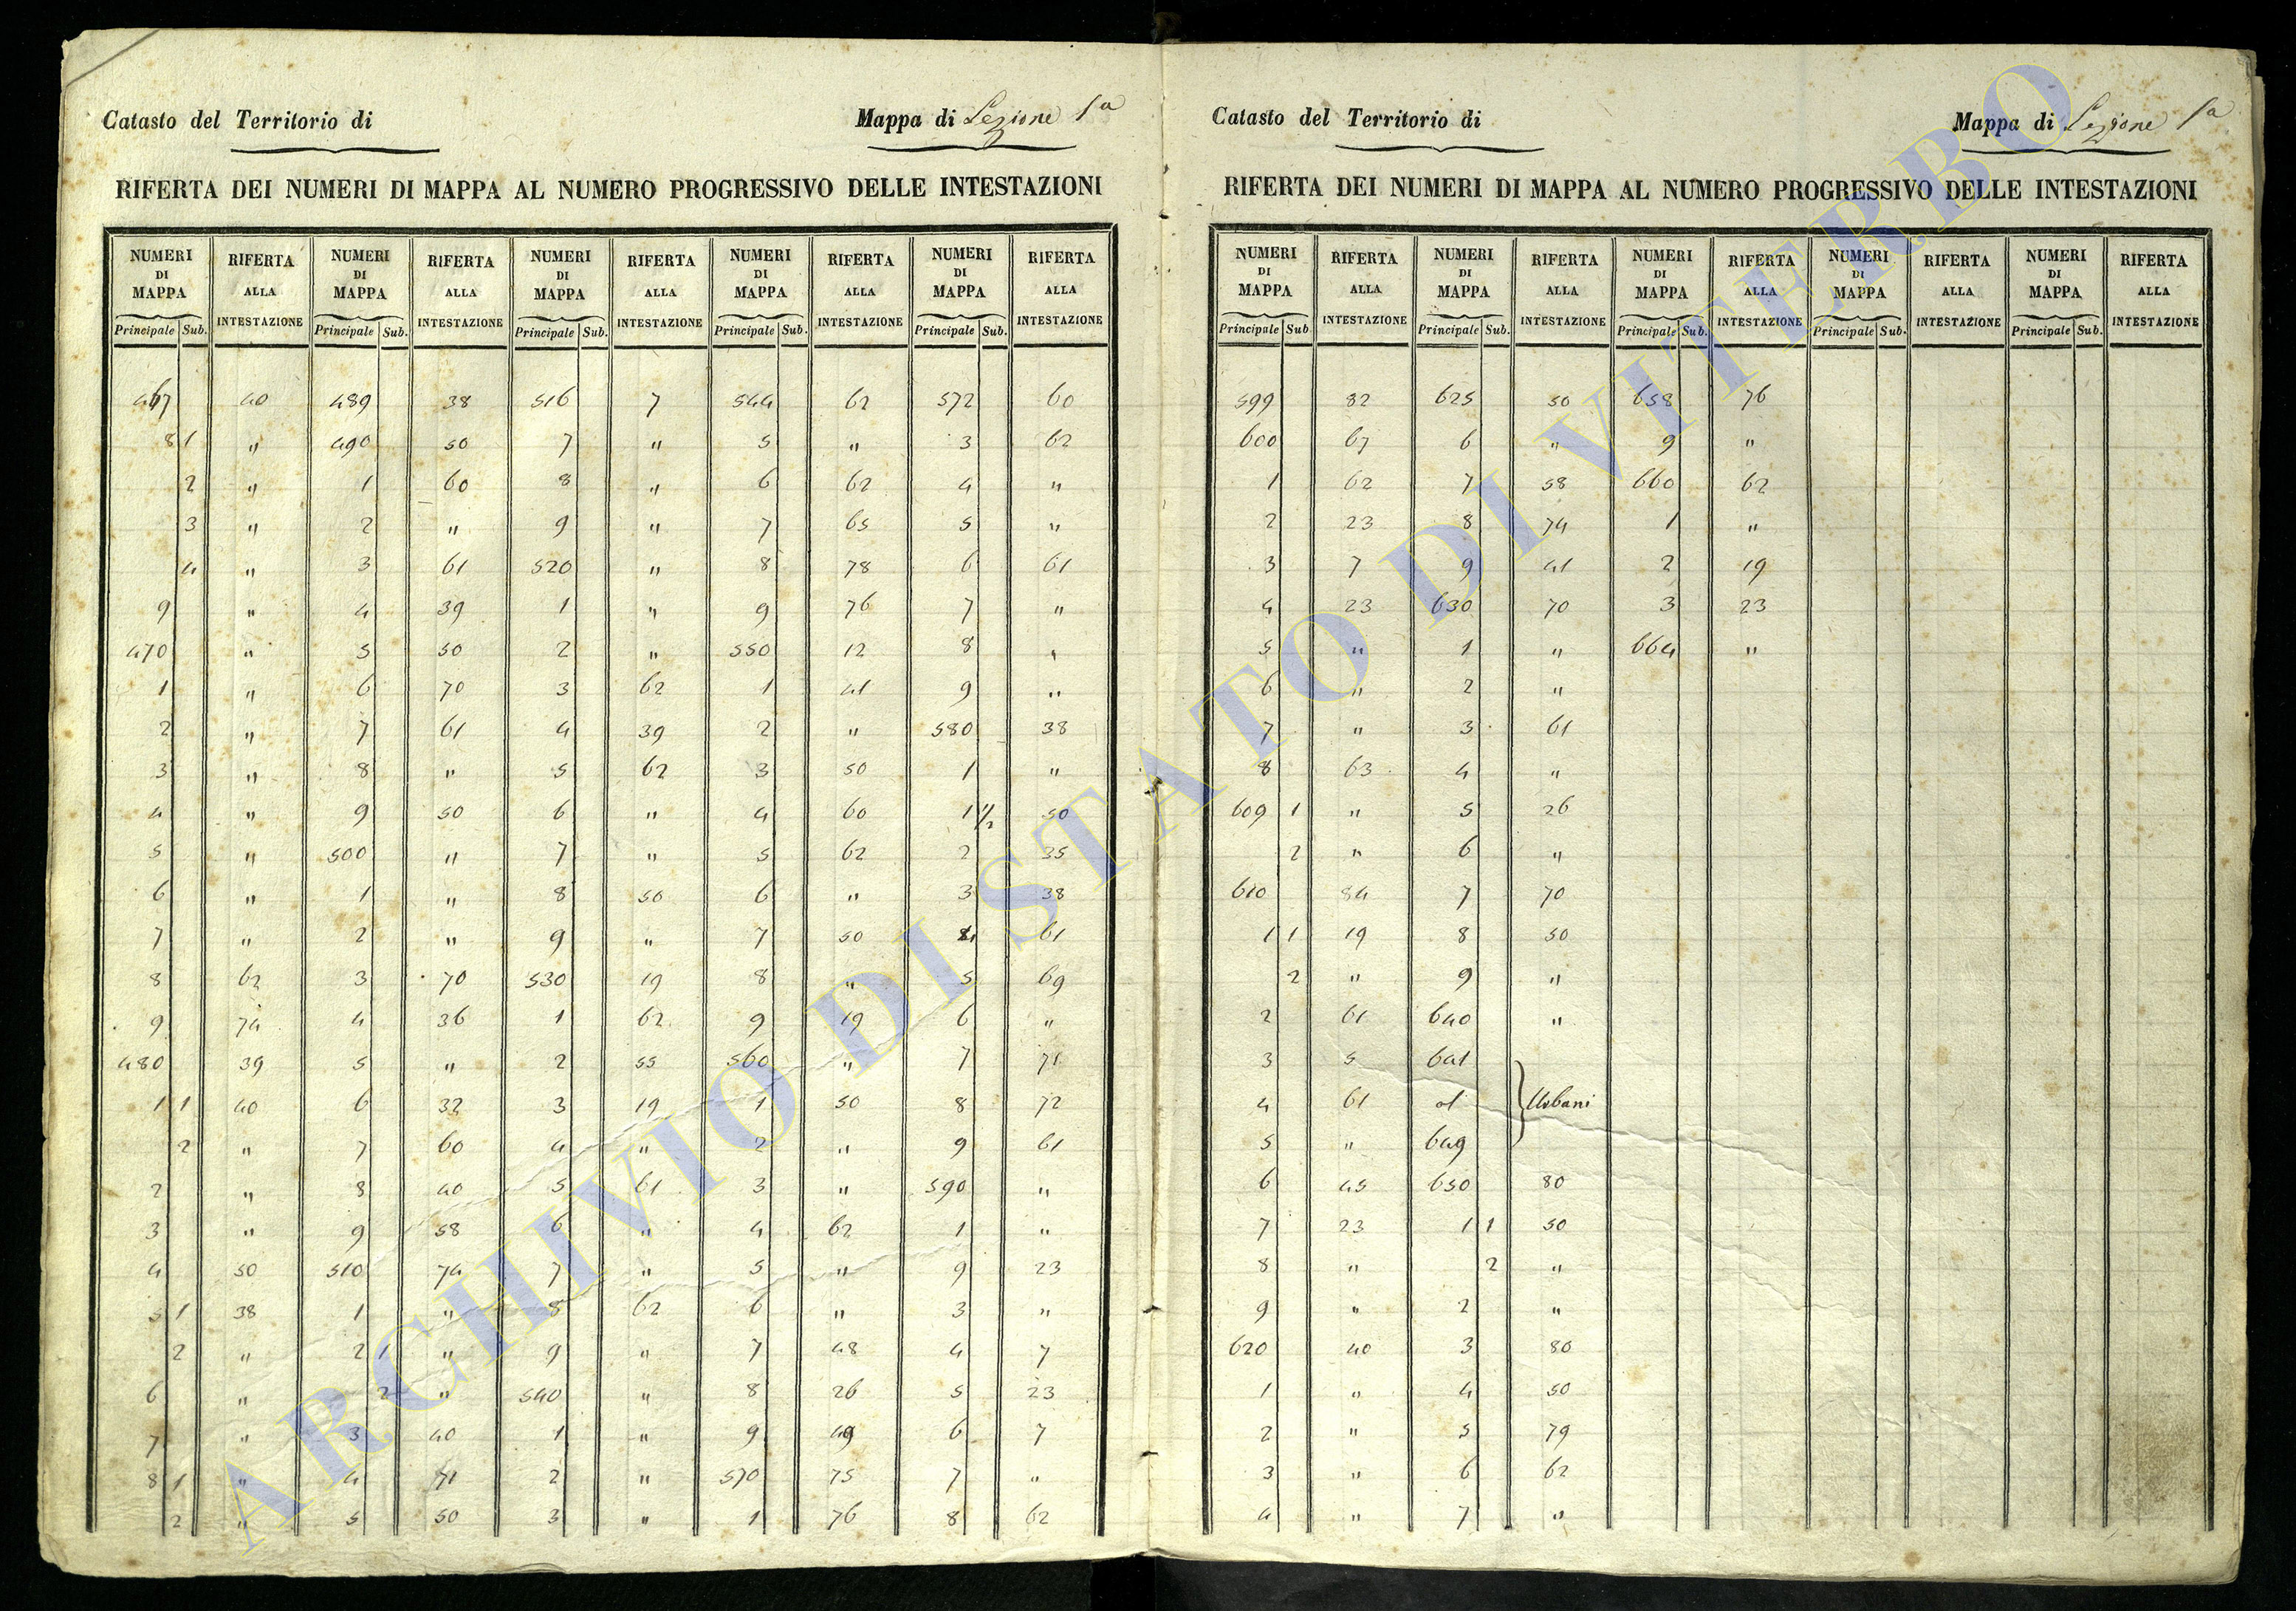 Catasto del Territorio di Mappa di Sezione 1a
RIFERTA DEI NUMERI DI MAPPA AL NUMERO PROGRESSIVO DELLE INTESTAZIONI
NUMERI DI MAPPA RIFERTA ALLA INTESTAZIONE NUMERI DI MAPPA RIFERTA ALLA INTESTAZIONE NUMERI DI MAPPA RIFERTA ALLA INTESTAZIONE NUMERI DI MAPPA RIFERTA ALLA INTESTAZIONE NUMERI DI MAPPA RIFERTA ALLA INTESTAZIONE
Principale Sub. Principale Sub. Principale Sub. Principale Sub. Principale Sub.
467 40 489 38 516 7 544 62 572 60
8 1 " 490 50 7 " 5 " 3 62
2 " 1 60 8 " 6 62 4 "
3 " 2 " 9 " 7 65 5 "
4 " 3 61 520 " 8 78 6 61
9 " 4 39 1 " 9 76 7 "
470 " 5 50 2 " 550 12 8 "
1 " 6 70 3 62 1 41 9 "
2 " 7 61 4 39 2 " 580 38
3 " 8 " 5 62 3 50 1 "
4 " 9 50 6 " 4 60 1 1/2 50
5 " 500 " 7 " 5 62 2 35
6 " 1 " 8 50 6 " 3 38
7 " 2 " 9 " 7 50 4 61
8 62 3 70 530 19 8 " 5 69
9 74 4 36 1 62 9 19 6 "
480 39 5 " 2 55 560 " 7 71
1 1 40 6 32 3 19 1 50 8 72
2 " 7 60 4 " 2 " 9 61
2 " 8 40 5 61 3 " 590 "
3 " 9 58 6 " 4 62 1 "
4 50 510 74 7 " 5 " 9 23
5 1 38 1 " 8 62 6 " 3 "
2 " 2 1 " 9 " 7 48 4 7
6 " 2 " 540 " 8 26 5 23
7 " 3 40 1 " 9 49 6 7
8 1 " 4 71 2 " 570 75 7 "
2 " 5 50 3 " 1 76 8 62
Catasto del Territorio di Mappa di Sezione 1a
RIFERTA DEI NUMERI DI MAPPA AL NUMERO PROGRESSIVO DELLE INTESTAZIONI
NUMERI DI MAPPA RIFERTA ALLA INTESTAZIONE NUMERI DI MAPPA RIFERTA ALLA INTESTAZIONE NUMERI DI MAPPA RIFERTA ALLA INTESTAZIONE NUMERI DI MAPPA RIFERTA ALLA INTESTAZIONE NUMERI DI MAPPA RIFERTA ALLA INTESTAZIONE
Principale Sub Principale Sub. Principale Sub. Principale Sub. Principale Sub.
599 82 625 50 658 76
600 67 6 " 9 "
1 62 7 58 660 62
2 23 8 74 1 "
3 7 9 41 2 19
4 23 630 70 3 23
5 " 1 " 664 "
6 " 2 "
7 " 3 61
8 63 4 "
609 1 " 5 26
2 " 6 "
610 84 7 70
1 1 19 8 50
2 " 9 "
2 61 640 "
3 5 641
4 61 al Urbani
5 " 649
6 45 650 80
7 23 1 1 50
8 " 2 "
9 " 2 "
620 40 3 80
1 " 4 50
2 " 5 79
3 " 6 62
4 " 7 "
ARCHIVIO DI STATO DI VITERBO